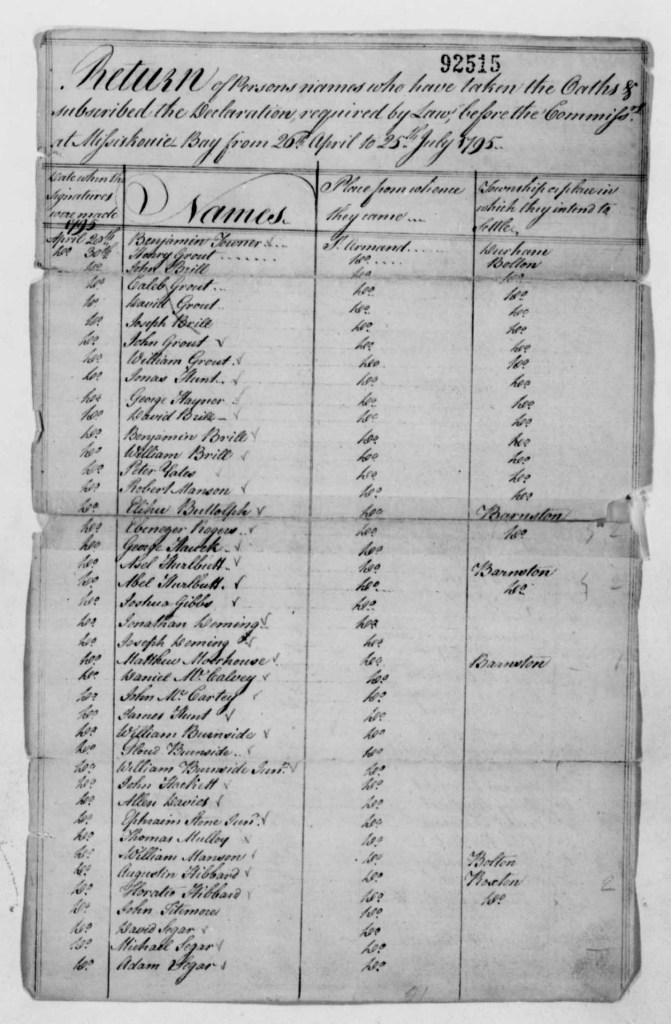 92515
Return of Persons names who have taken the Oaths &
subscribed the Declaration, required by Law, before the Commissrs.
at Missiskouie Bay from 26th April to 25th July 1795.
Date when the Signatures were made | Names. | Place from whence they came | Township or place in which they intend to settle
1795
April 26th Benjamin Towner St. Armand Durham
Do 30th Henry Grout Do Bolton
Do John Brill Do Do
Do Caleb Grout Do Do
Do David Grout Do Do
Do Joseph Brill Do Do
Do John Grout Do Do
Do William Grout Do Do
Do Jonas Hunt Do Do
Do George Haynor Do Do
Do David Brill Do Do
Do Benjamin Brill Do Do
Do William Brill Do Do
Do Peter Yates Do Do
Do Robert Manson Do Do
Do Elihu Buttolph Do Barnston
Do Ebenezer Rogers Do Do
Do George Hawck Do
Do Asel Hurlbutt Do Barnston
Do Abel Hurlbutt Do Do
Do Joshua Gibbs Do
Do Jonathan Deming Do
Do Joseph Deming Do
Do Matthew Moorhouse Do Barnston
Do Daniel Mc Calvey Do
Do John Mc Cartey Do
Do James Hunt Do
Do William Burnside Do
Do Burnside Do
Do William Burnside Junr. Do
Do John Hackett Do
Do Allen Davies Do
Do Ephraim Stone Junr. Do
Do Thomas Mulloy Do
Do William Manson Do Bolton
Do Augustin Hibbard Do Roxton
Do Horatio Hibbard Do Do
Do John Titemore Do
Do David Segar Do
Do Michael Segar Do
Do Adam Segar Do